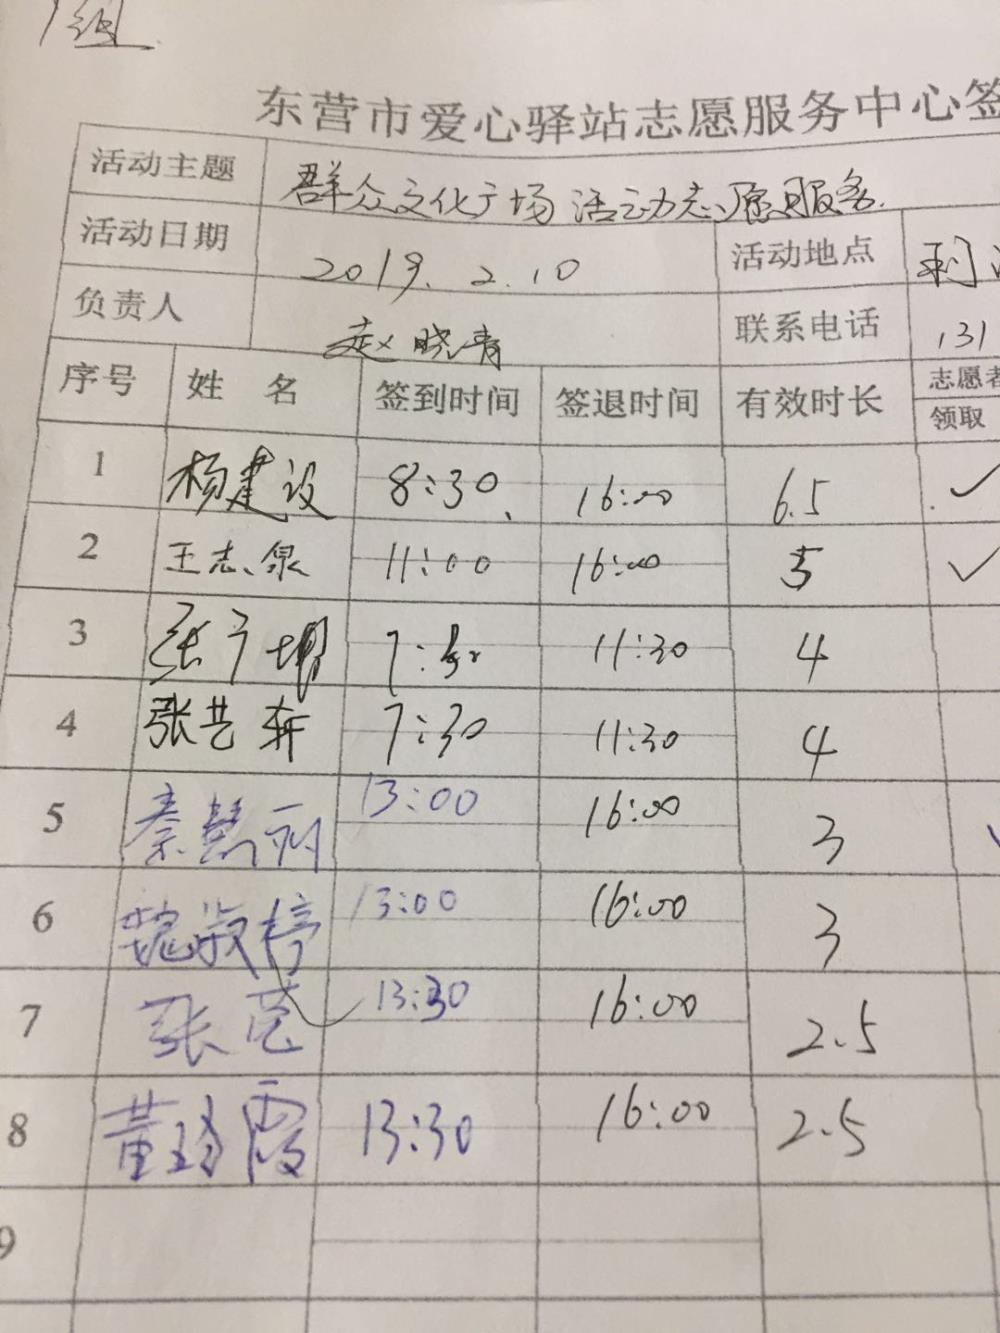 组
东营市爱心驿站志愿服务中心签
活动主题 群众文化广场活动志愿服务
活动日期 2019.2.10 活动地点 利
负责人 赵晓青 联系电话 131
序号 姓名 签到时间 签退时间 有效时长 志愿者
领取
1 杨建设 8:30 16:00 6.5 ✓
2 王志泉 11:00 16:00 5 ✓
3 张 7: 11:30 4
4 张艺 7:30 11:30 4
5 秦慧丽 13:00 16:00 3
6 魏淑婷 13:00 16:00 3
7 张 13:30 16:00 2.5
8 董 霞 13:30 16:00 2.5
9